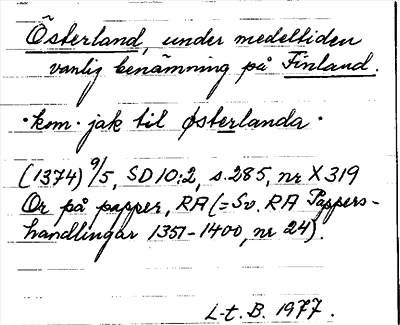 Österland, under medeltiden
vanlig benämning på Finland.
·kom· jak til østerlanda·
(1374) 9/5, SD 10:2, s. 285, nr X 319
Or på papper, RA (= Sv. RA Pappers-
handlingar 1351-1400, nr 24).
L-t. B. 1977.